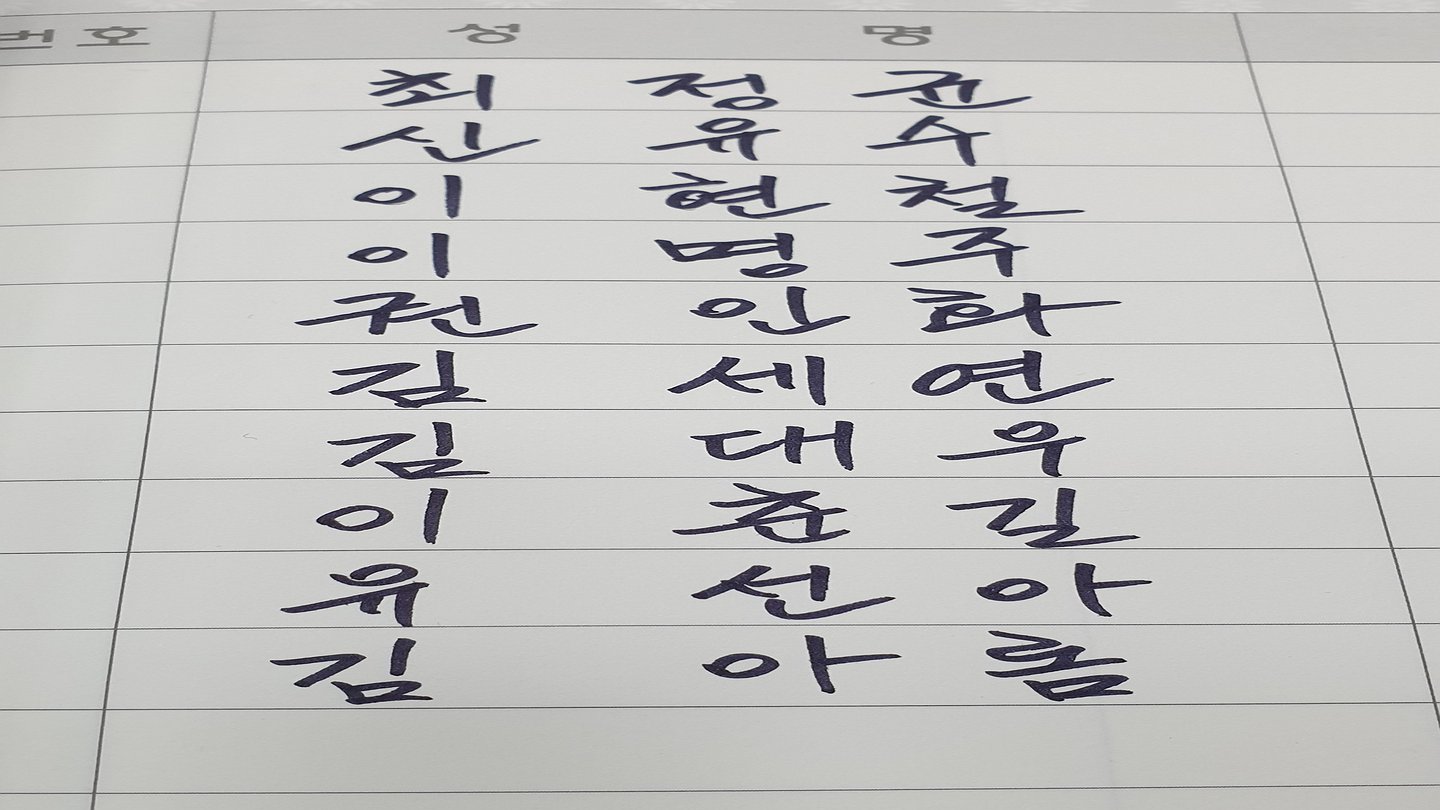 번호 성 명
최 정 권
신 유 수
이 현 철
이 명 주
권 인 화
김 세 연
김 대 우
이 춘 길
유 선 아
김 아 람